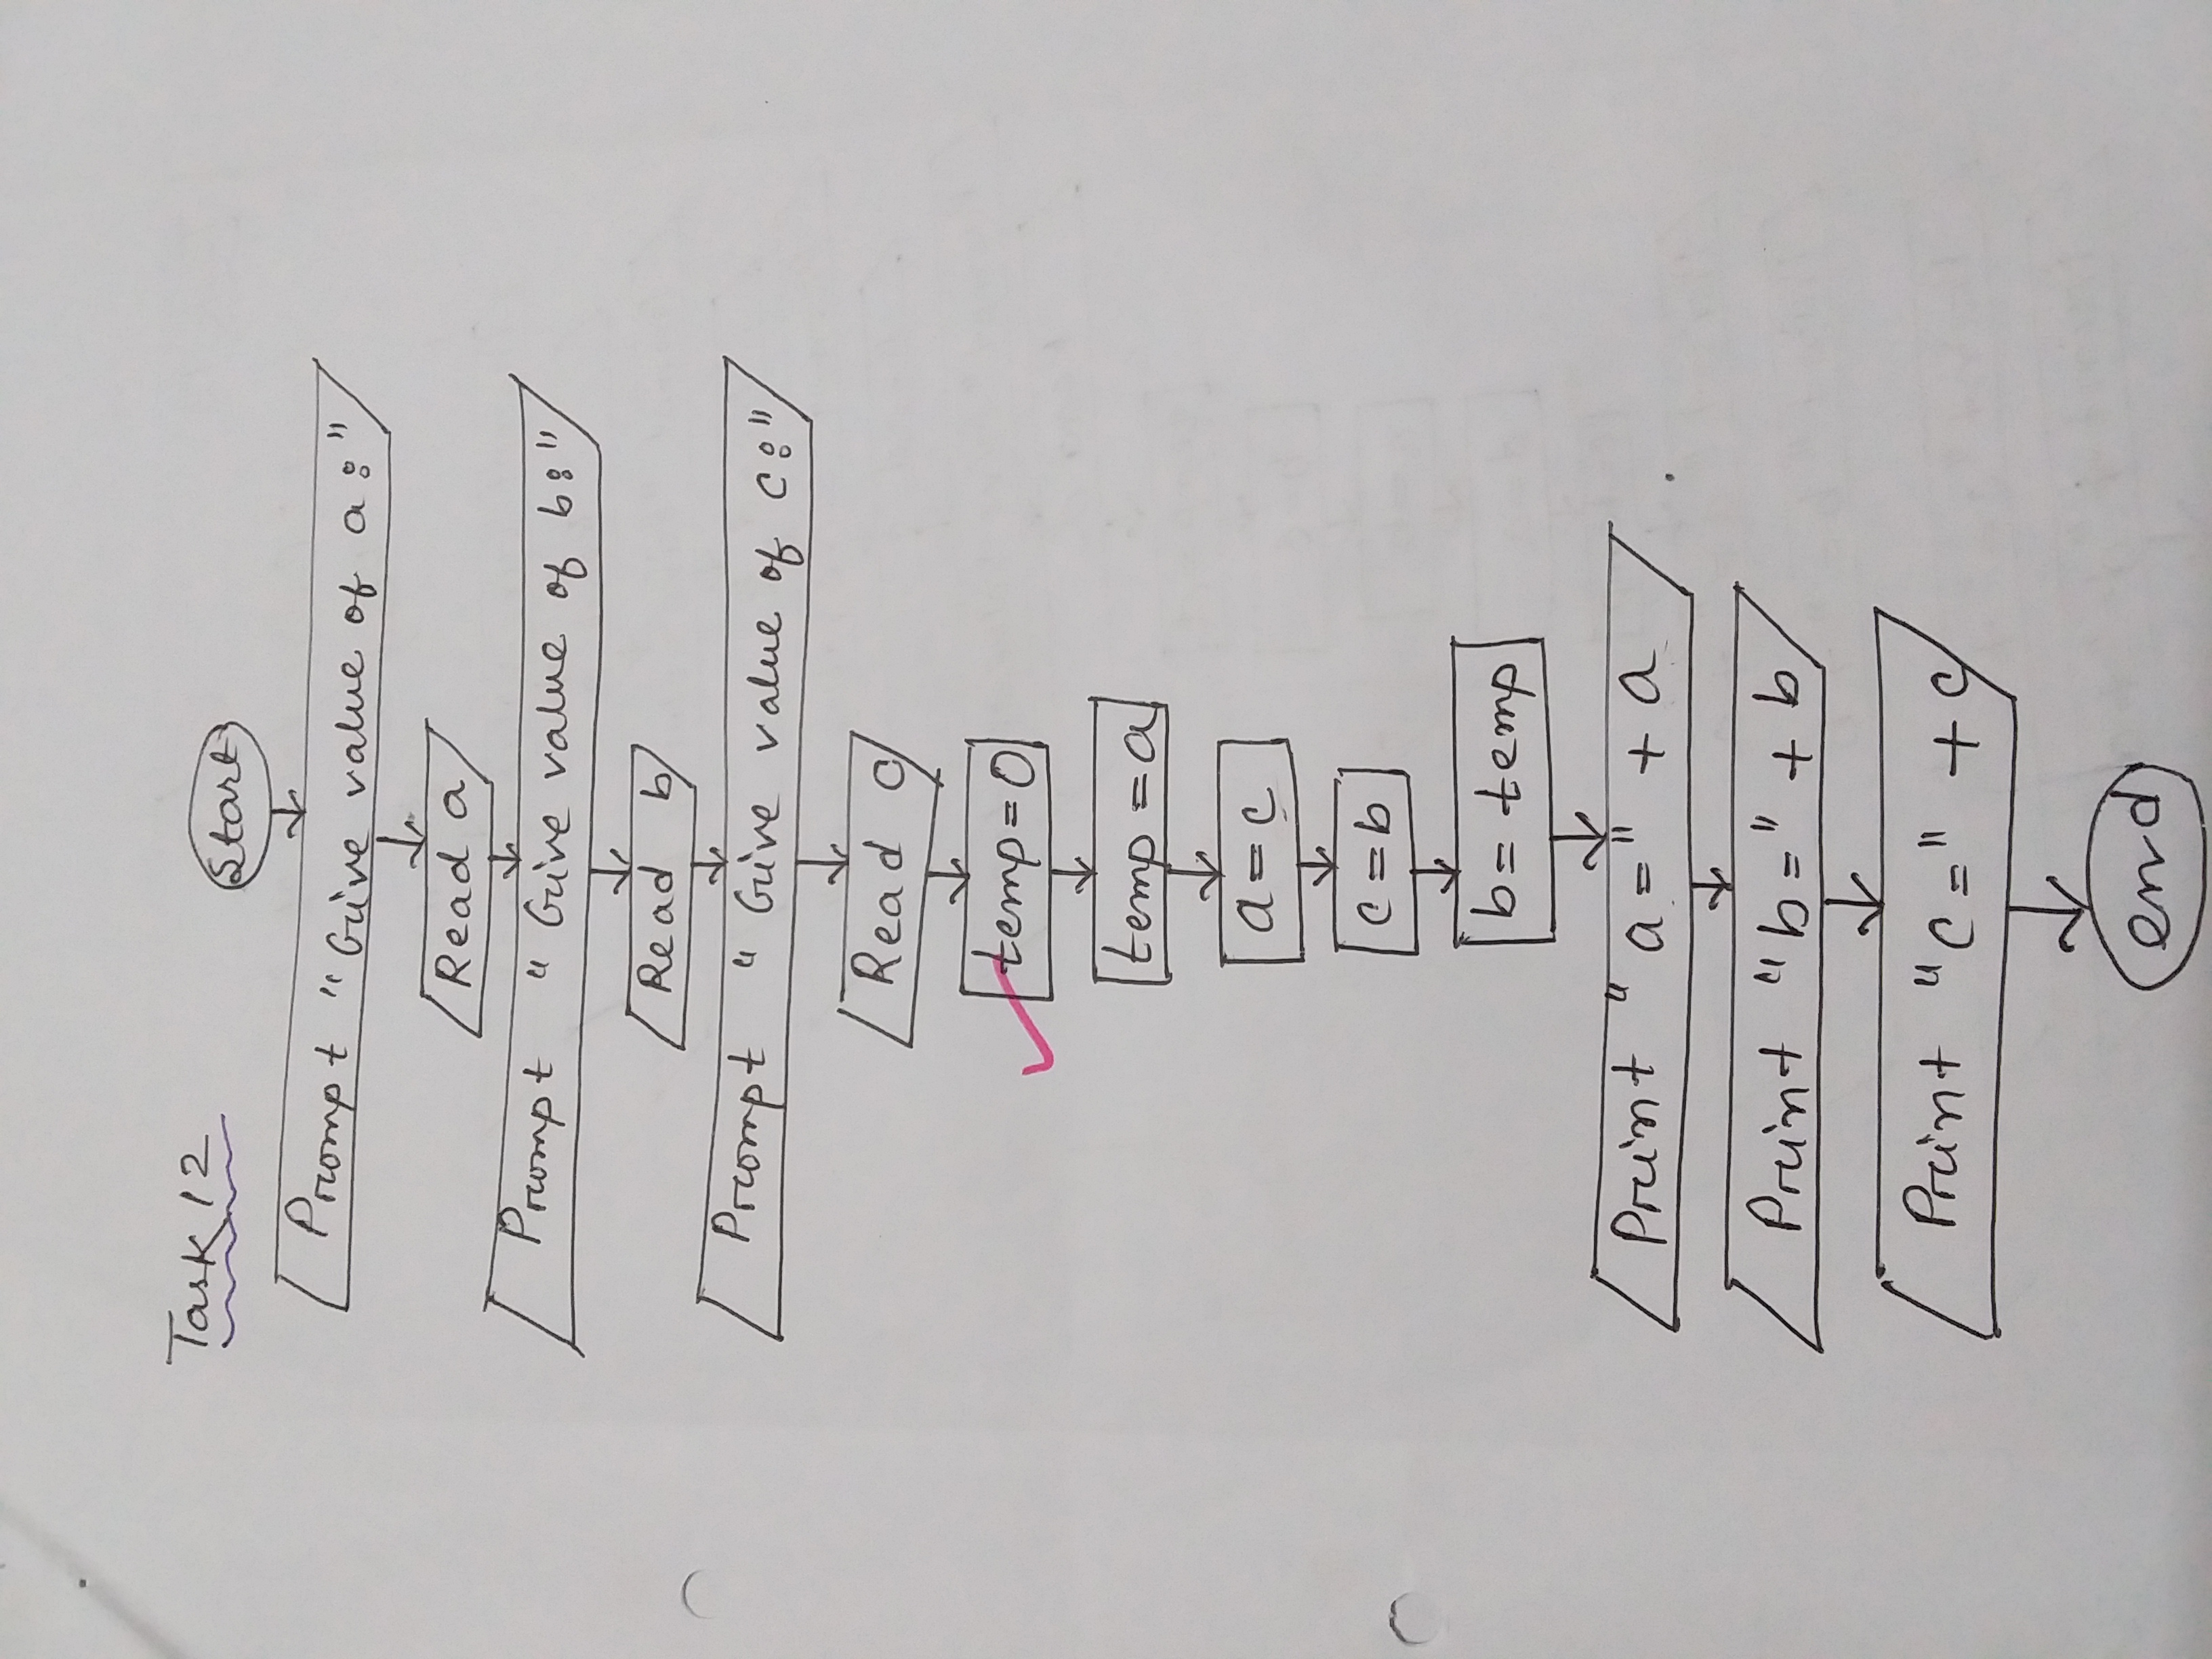 Task 12
Start
Prompt "Give value of a:"
Read a
Prompt "Give value of b:"
Read b
Prompt "Give value of c:"
Read c
temp=0
temp=a
a=c
c=b
b=temp
Print "a=" + a
Print "b=" + b
Print "c=" + c
end